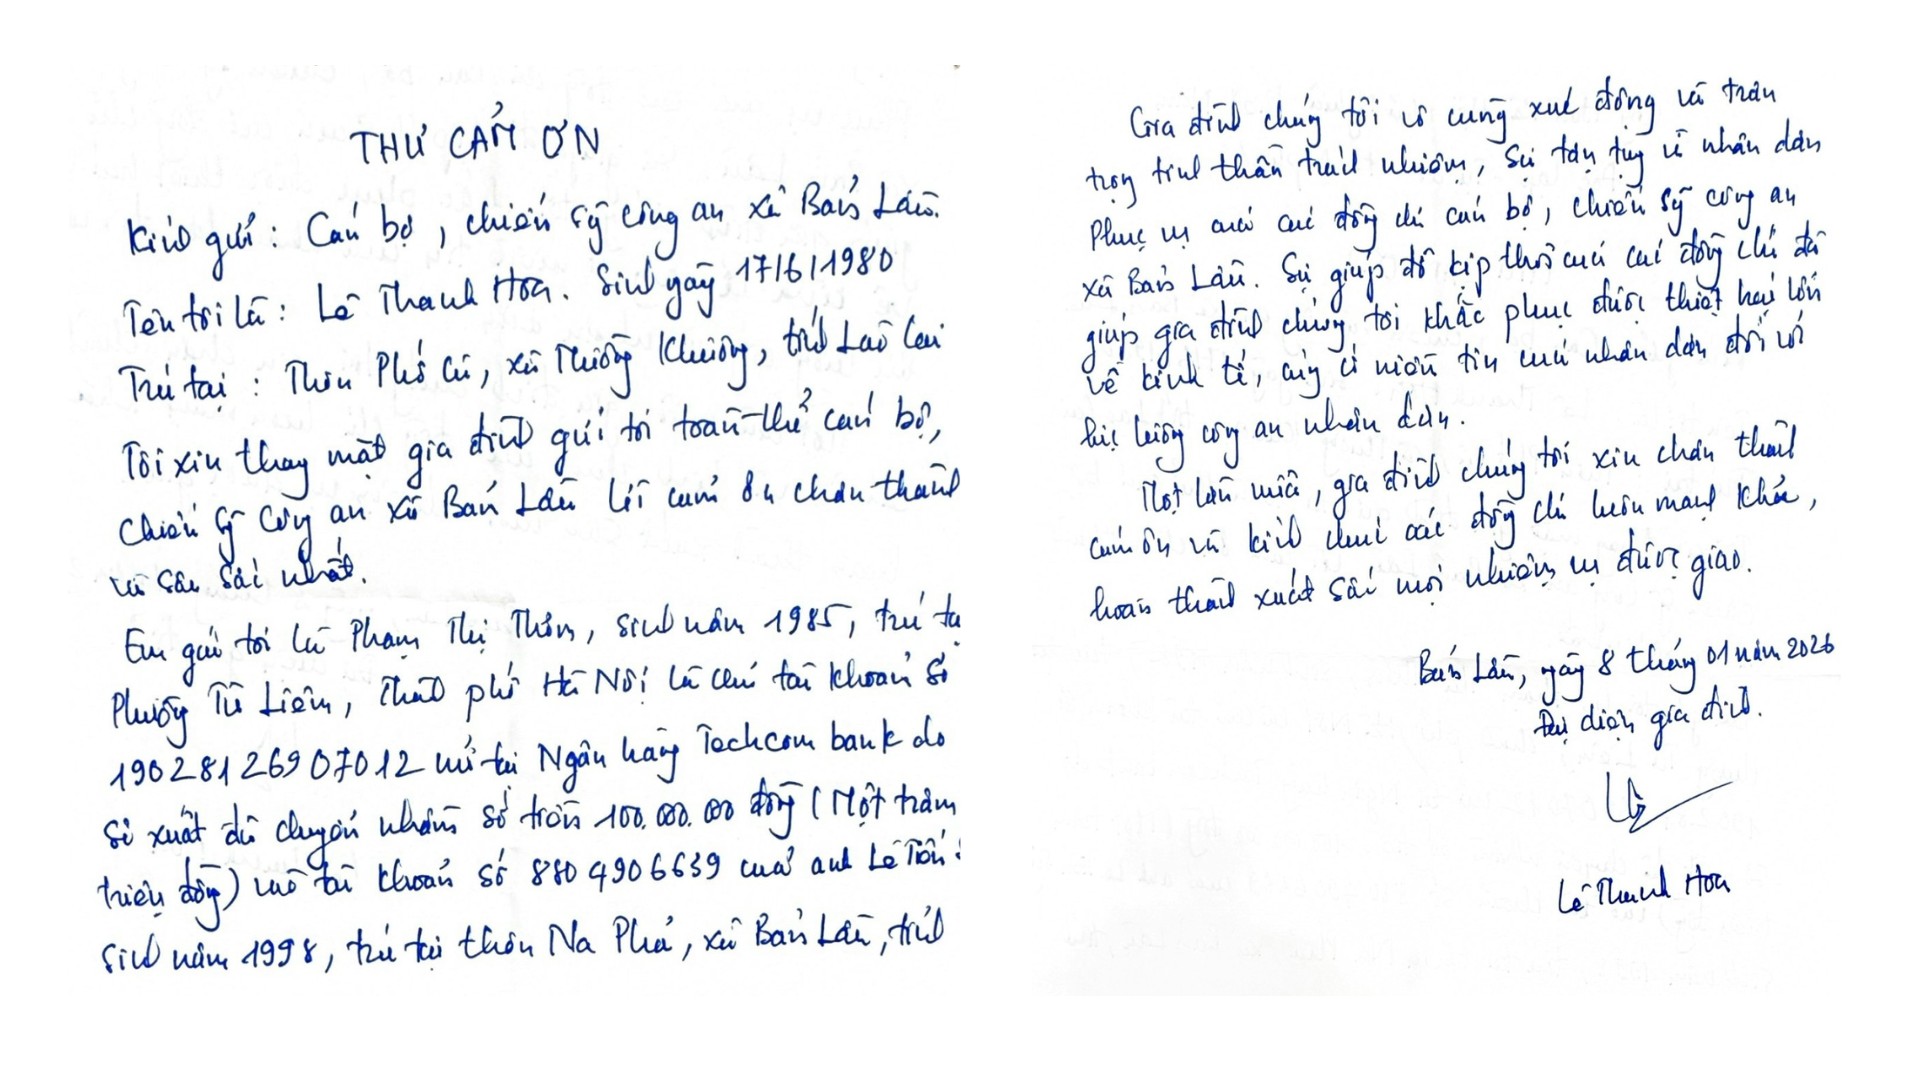 THƯ CẢM ƠN
Kính gửi: Cán bộ, chiến sỹ công an xã Bản Lầu.
Tên tôi là: Lê Thanh Hoa. Sinh ngày 17/6/1980
Trú tại: Thôn Phố Cũ, xã Mường Khương, tỉnh Lào Cai
Tôi xin thay mặt gia đình gửi tới toàn thể cán bộ,
chiến sỹ công an xã Bản Lầu lời cảm ơn chân thành
và sâu sắc nhất.
Em gái tôi là Phạm Thị Thơm, sinh năm 1985, trú tạ
Phường Từ Liêm, thành phố Hà Nội là chủ tài khoản số
19028126907012 mở tại Ngân hàng Techcom bank do
sơ xuất đã chuyển nhầm số tiền 100.000.000 đồng (Một trăm
triệu đồng) vào tài khoản số 8804906639 của anh Lê Tiến
sinh năm 1998, trú tại thôn Na Phả, xã Bản Lầu, tỉnh
Gia đình chúng tôi vô cùng xúc động và trân
trọng tinh thần trách nhiệm, sự tận tụy vì nhân dân
phục vụ của các đồng chí cán bộ, chiến sỹ công an
xã Bản Lầu. Sự giúp đỡ kịp thời của các đồng chí đã
giúp gia đình chúng tôi khắc phục được thiệt hại lớn
về kinh tế, củng cố niềm tin của nhân dân đối với
lực lượng công an nhân dân.
Một lần nữa, gia đình chúng tôi xin chân thành
cảm ơn và kính chúc các đồng chí luôn mạnh khỏe,
hoàn thành xuất sắc mọi nhiệm vụ được giao.
Bản Lầu, ngày 8 tháng 01 năm 2026
Đại diện gia đình.
Lê Thanh Hoa